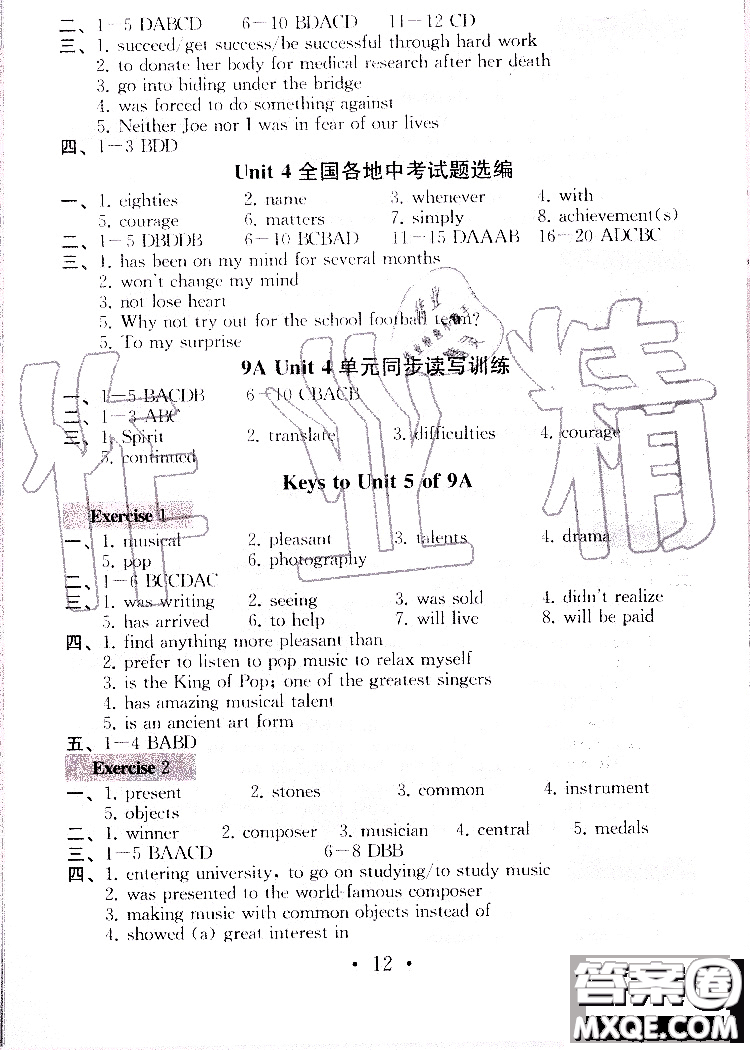 二、1-5 DABCD 6-10 BDACD 11-12 CD
三、1. succeed/get success/be successful through hard work
2. to donate her body for medical research after her death
3. go into hiding under the bridge
4. was forced to do something against
5. Neither Joe nor I was in fear of our lives
四、1-3 BDD
Unit 4 全国各地中考试题选编
一、1. eighties 2. name 3. whenever 4. with
5. courage 6. matters 7. simply 8. achievement(s)
二、1-5 DBDDB 6-10 BCBAD 11-15 DAAAB 16-20 ADCBC
三、1. has been on my mind for several months
2. won't change my mind
3. not lose heart
5. Why not try out for the school football team?
5. To my surprise
9A Unit 4 单元同步读写训练
一、1-5 BACDB 6-10 CBACB
二、1-3 ABC
三、1. Spirit 2. translate 3. difficulties 4. courage
5. continued
Keys to Unit 5 of 9A
Exercise 1
一、1. musical 2. pleasant 3. talents 4. drama
5. pop 6. photography
二、1-6 BCCDAC
三、1. was writing 2. seeing 3. was sold 4. didn't realize
5. has arrived 6. to help 7. will live 8. will be paid
四、1. find anything more pleasant than
2. prefer to listen to pop music to relax myself
3. is the King of Pop; one of the greatest singers
4. has amazing musical talent
5. is an ancient art form
五、1-4 BABD
Exercise 2
一、1. present 2. stones 3. common 4. instrument
5. objects
二、1. winner 2. composer 3. musician 4. central 5. medals
三、1-5 BAACD 6-8 DBB
四、1. entering university, to go on studying/to study music
2. was presented to the world-famous composer
3. making music with common objects instead of
4. showed (a) great interest in
· 12 ·
作业精
答案圈
MXQE.COM